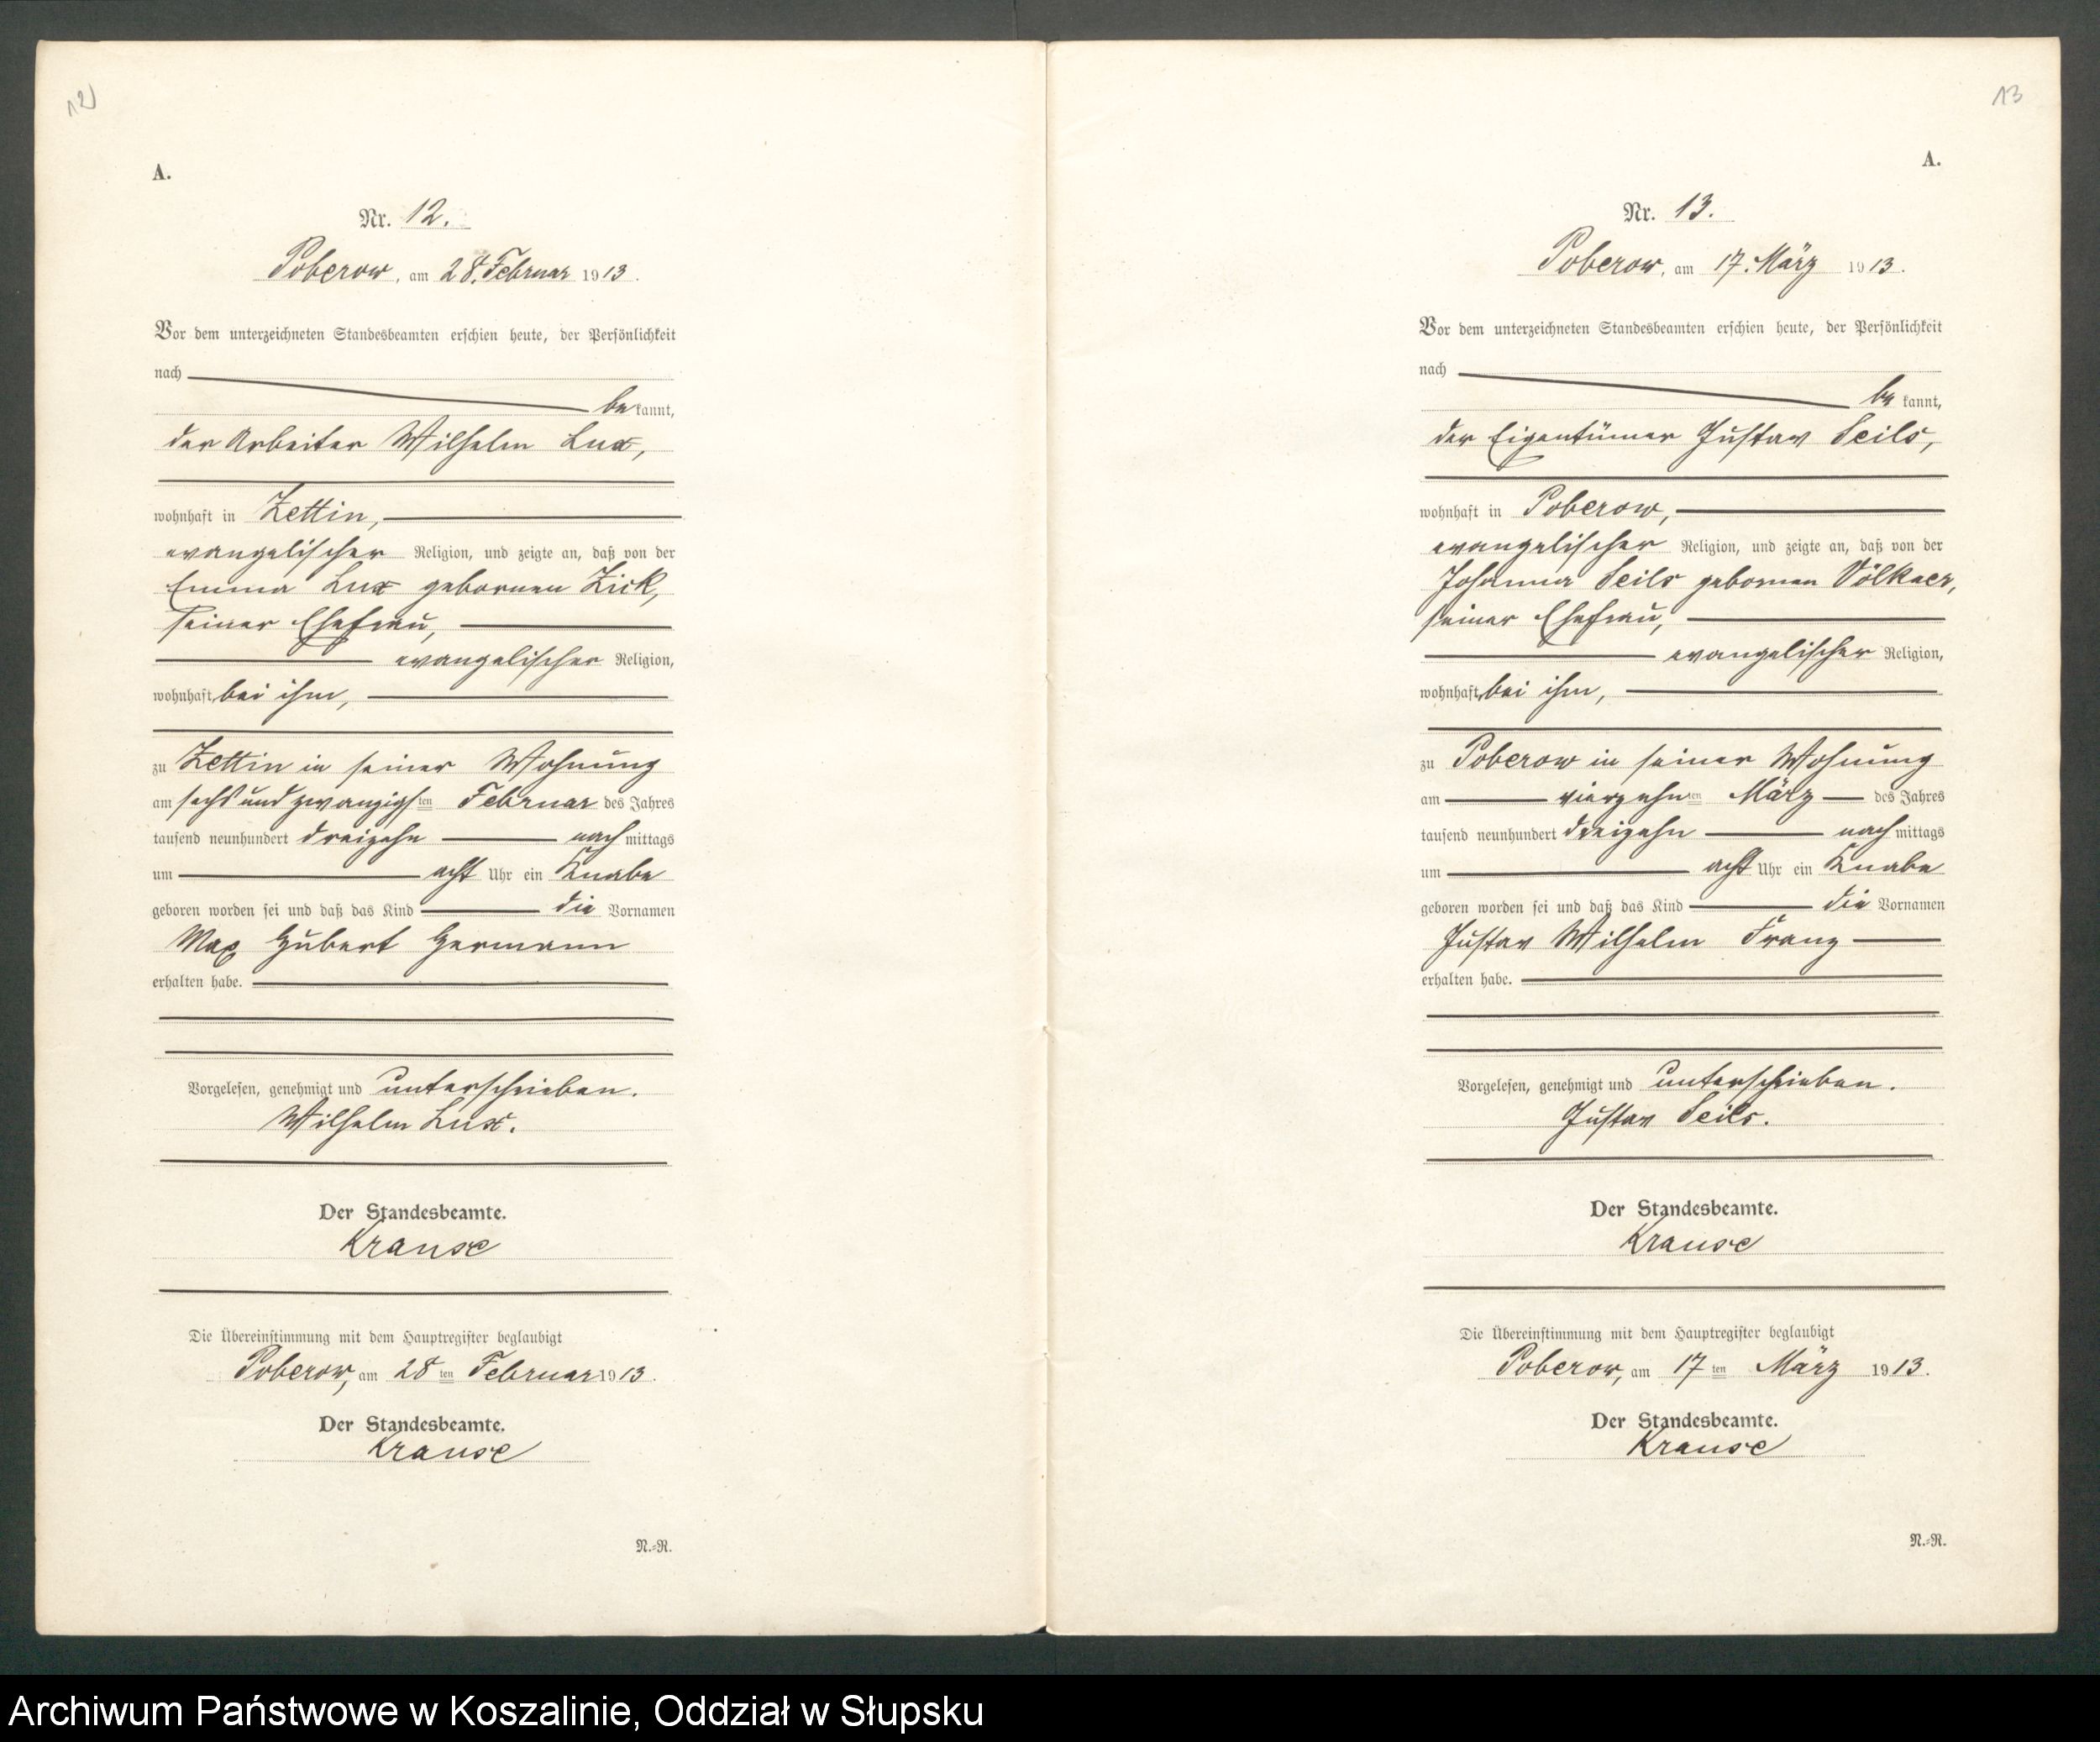 12
A.
Nr. 12.
Poberow, am 28. Februar 1913.
Vor dem unterzeichneten Standesbeamten erschien heute, der Persönlichkeit
nach
bekannt,
der Arbeiter Wilhelm Lux,
wohnhaft in Zettin,
evangelischer Religion, und zeigte an, daß von der
Emma Lux gebornen Zick,
seiner Ehefrau,
evangelischer Religion,
wohnhaft bei ihm,
zu Zettin in seiner Wohnung
am sechsundzwanzigsten Februar des Jahres
tausend neunhundert dreizehn nachmittags
um acht Uhr ein Knabe
geboren worden sei und daß das Kind die Vornamen
Max Hubert Hermann
erhalten habe.
Vorgelesen, genehmigt und unterschrieben.
Wilhelm Lux.
Der Standesbeamte.
Krause
Die Übereinstimmung mit dem Hauptregister beglaubigt
Poberow, am 28ten Februar 1913.
Der Standesbeamte.
Krause
N.-R.
13
A.
Nr. 13.
Poberow, am 17. März 1913.
Vor dem unterzeichneten Standesbeamten erschien heute, der Persönlichkeit
nach
bekannt,
der Eigentümer Gustav Seils,
wohnhaft in Poberow,
evangelischer Religion, und zeigte an, daß von der
Johanna Seils gebornen Völkner,
seiner Ehefrau,
evangelischer Religion,
wohnhaft bei ihm,
zu Poberow in seiner Wohnung
am vierzehnten März des Jahres
tausend neunhundert dreizehn nachmittags
um acht Uhr ein Knabe
geboren worden sei und daß das Kind die Vornamen
Gustav Wilhelm Franz
erhalten habe.
Vorgelesen, genehmigt und unterschrieben.
Gustav Seils.
Der Standesbeamte.
Krause
Die Übereinstimmung mit dem Hauptregister beglaubigt
Poberow, am 17ten März 1913.
Der Standesbeamte.
Krause
N.-R.
Archiwum Państwowe w Koszalinie, Oddział w Słupsku